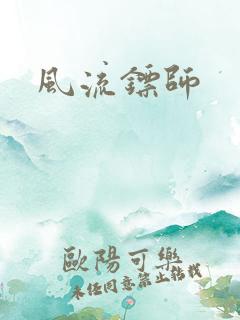 風流鏢師
歐陽可樂
未經同意禁止轉載